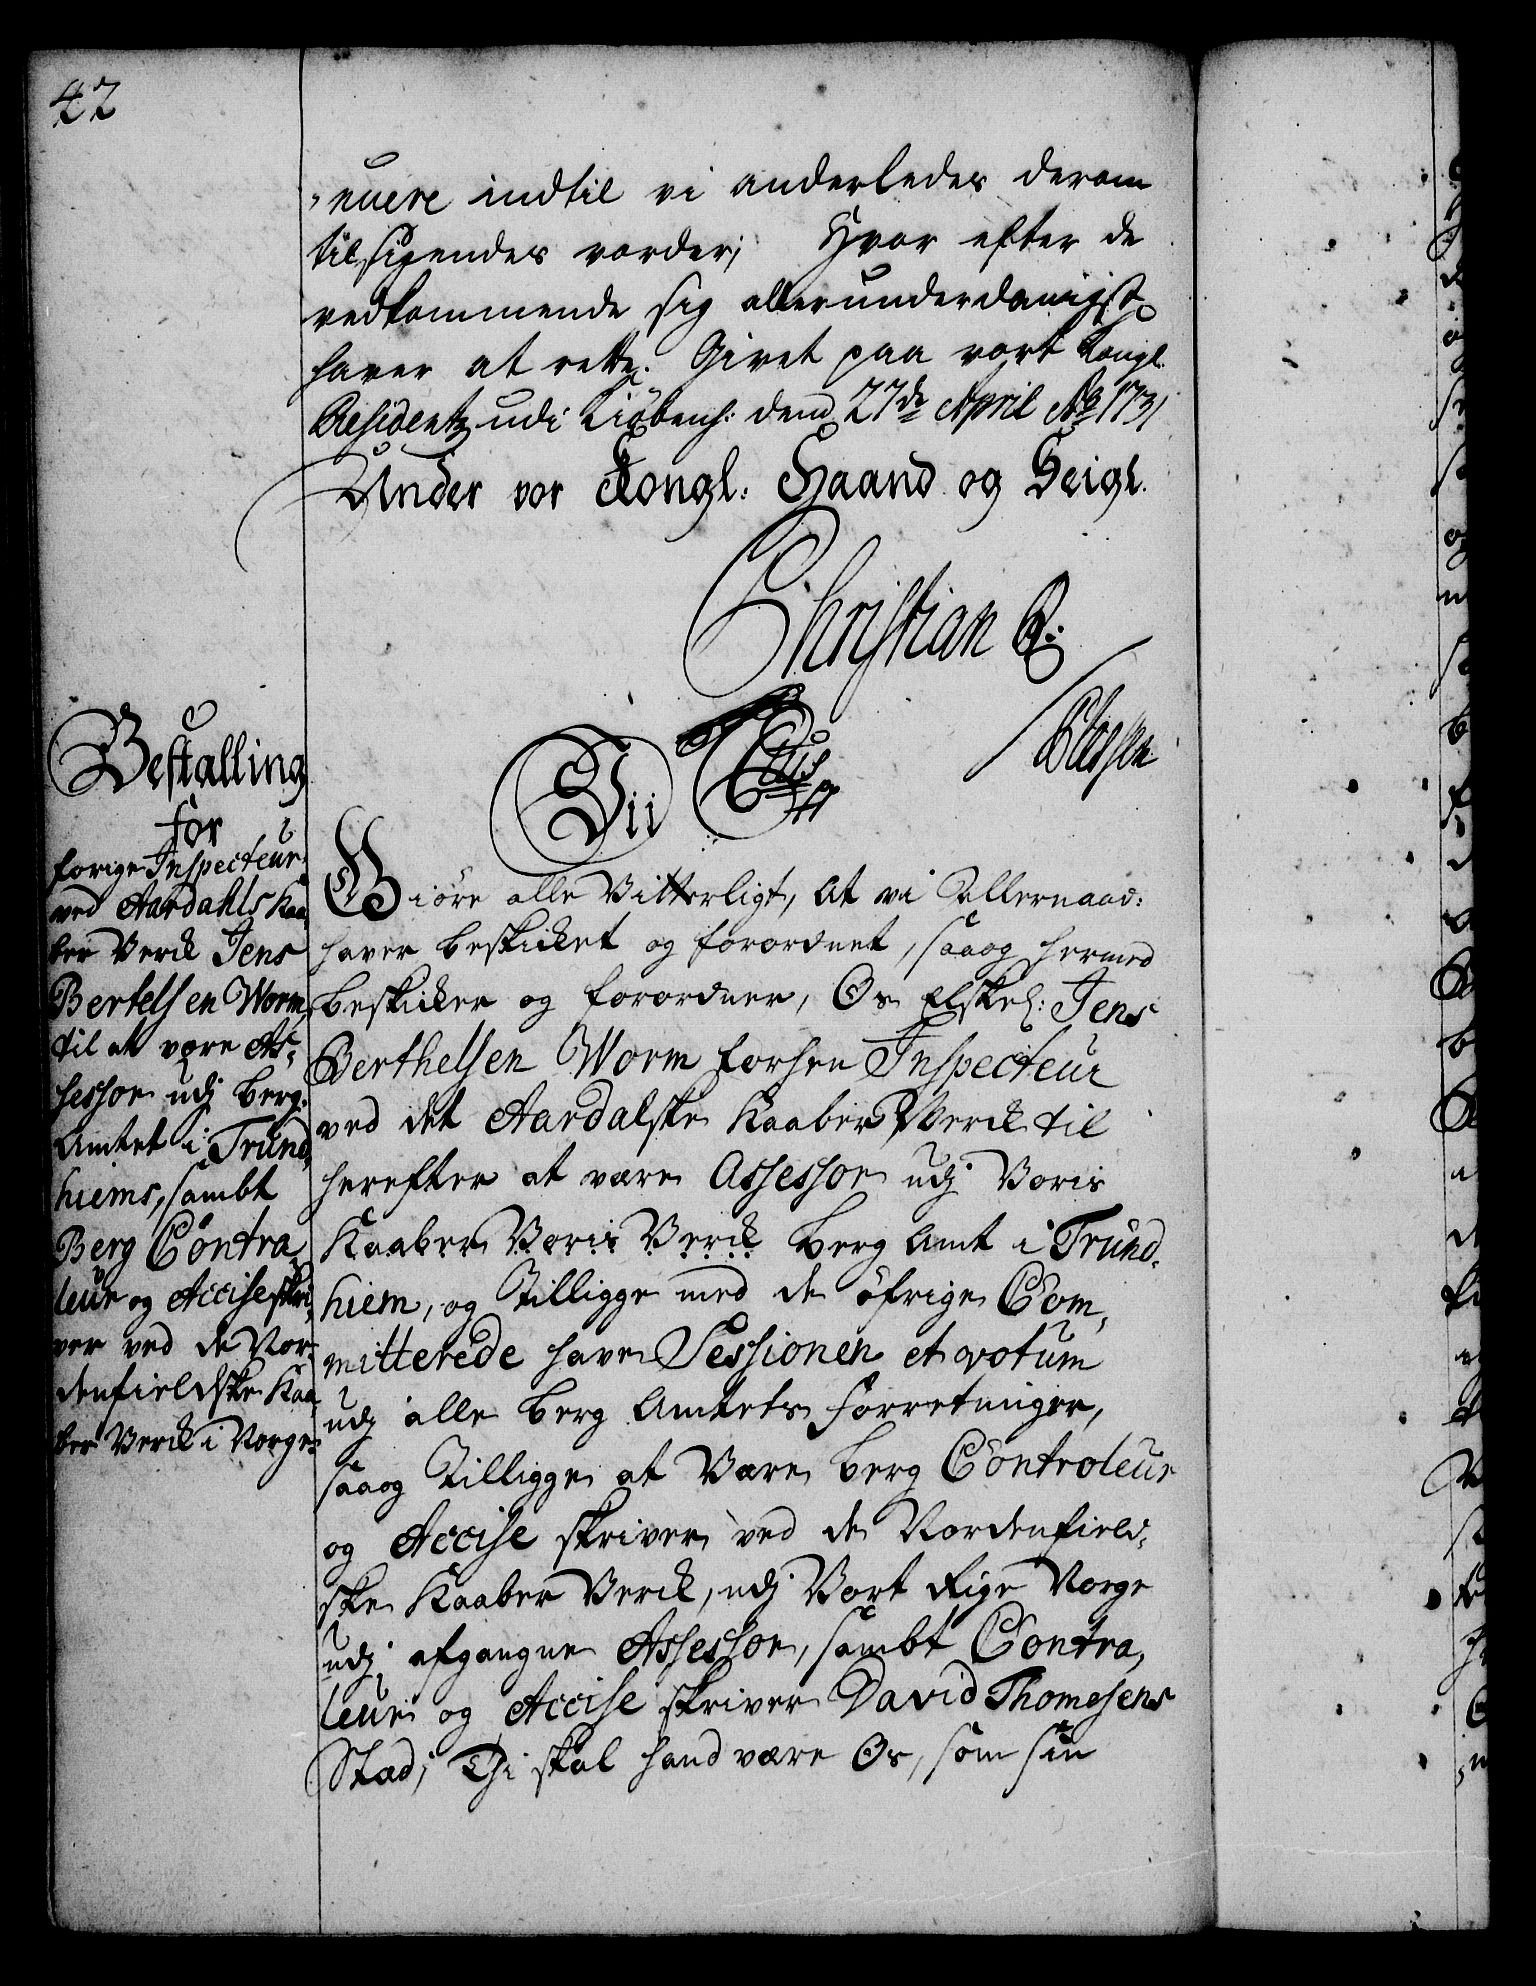 42
nuere indtil vi anderledes derom
tilsigendes vorder; Hvor efter de
vedkommende sig allerunderdanigst
haver at rette. Givet paa vort Kongl.
Residentz udi Kiøbenh: dend 27de April Ao 1731
Under vor Kongl: Haand og Seigl.
Christian R:
Bestalling
for
forige Inspecteur
ved Aardahls Kaa-
ber Verck Jens
Bertelsen Worm,
til at være As-
sessor udj Berg-
Amtet i Trund-
hiems, sambt
Berg Contra-
leur og Accise skri-
ver ved de Nor-
denfieldske Kaa-
ber Verck i Norge
Vii
Giöre alle Vitterligt, At vi Allernaad:
haver beskicket og forordnet, saaog hermed
beskicker og forordner, Os Elskel: Jens
Berthelsen Worm forhen Inspecteur
ved det Aardalske Kaaber Verck til
herefter at være Assessor udj Voris
Kaaber Voris Verck Berg Amt i Trund-
hiem, og Tilligge med de öfrige Com-
mitterede have Sessionen et votum
udj alle Berg Amtets Forretninger,
saaog Tilligge at Være Berg Controleur
og Accise skriver ved de Nordenfield-
ske Kaaber Verck, udj Vort Rige Norge
udj afgangne Assessor, sambt Contra-
leur og Accise skriver David Thomesens
Stad; Thi skal hand være Os, som sin